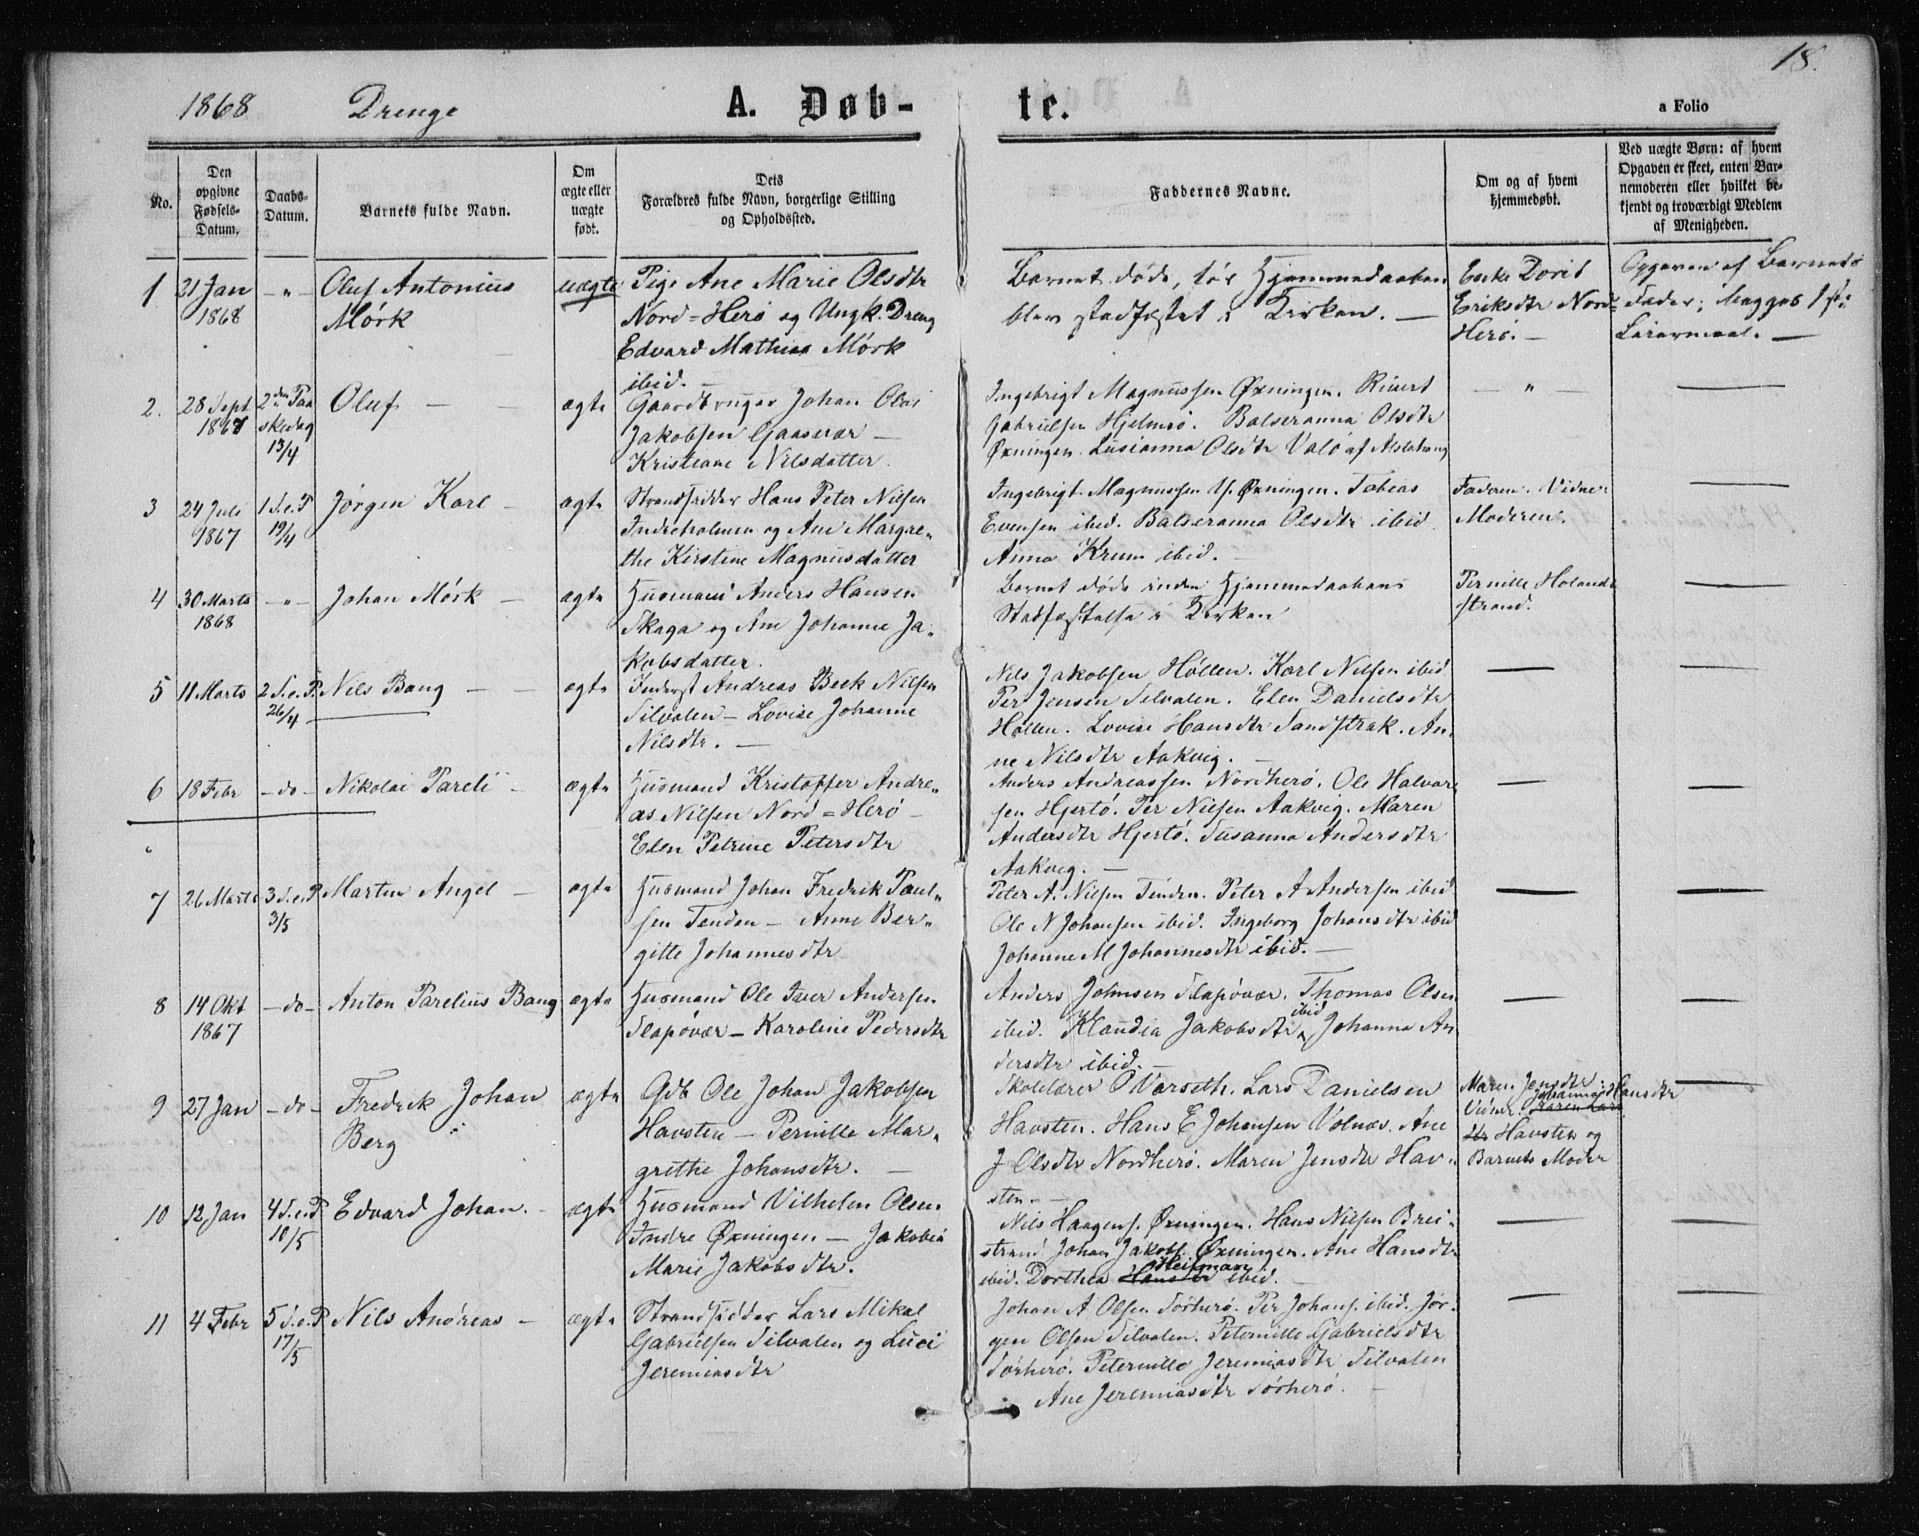 18.
1868 Drenge A. Døb- te. a Folio
No.
Den opgivne Fødsels-Datum.
Daabs-Datum.
Barnets fulde Navn.
Om ægte eller uægte født.
Dets Forældres fulde Navn, borgerlige Stilling og Opholdssted.
Faddernes Navne.
Om og af hvem hjemmedøbt.
Ved uægte Børn: af hvem Opgaven er skeet, enten Barnemoderen eller hvilket bekjendt og troværdigt Medlem af Menigheden.
1
21 Jan
1868
- " -
Oluf Antonius
Mørk
uægte
Pige Ane Marie Olsdtr
Nord=Herø og Ungk. Dreng
Edvard Mathias Mørk
ibid. -
Barnet døde, før Hjemmedaaben
blev stadfæstet i Kirken. -
Dorit
Eriksdtr Nord=
Herø. -
Opgaven af Barnets
Fader; Begges 1ste
Leiermaal. -
2.
28 Sept
1867
2den Paa
skedag
13/4
Oluf -
ægte
Gaardbruger Johan Olai
Jakobsen Gaasvær -
Kristiane Nilsdatter.
Ingebrigt Magnussen Øxningen. Rivert
Gabrielsen Hjelmsø. Balseranna Olsdtr
Øxningen. Lusianna Olsdtr Valø af Alstahoug
- " -
3
24 Juli
1867
1 S. e. P
19/4
Jørgen Karl -
ægte
Strandsidder Hans Peter Nilsen
Indreholmen og Ane Margre-
the Kirstine Magnusdatter
Ingebrigt Magnussen Y. Øxningen. Tobias
Evensen ibid. Balseranna Olsdtr ibid.
Anna Krum ibid. -
Faderen. Vidne:
Moderen.
4
30 Marts
1868
- " -
Johan Mørk -
ægte
Husmand Anders Hansen
Skaga og Ane Johanne Ja-
kobsdatter.
Barnet døde inden Hjemmedaabens
Stadfæstelse i Kirken
Pernille Holand
strand.
5
11 Marts
2 S. e. P.
26/4
Nils Bang -
ægte
Inderst Andreas Beck Nilsen
Silvalen - Lovise Johanne
Nilsdtr. -
Nils Jakobsen Høllen. Karl Nilsen ibid
Per Jensen Silvalen. Elen Danielsdtr
Høllen. Lovise Hansdtr Sandstrak. An-
ne Nilsdtr Aakvig. -
6
18 Febr
- do -
Nikolai Pareli -
ægte
Husmand Kristoffer Andre-
as Nilsen Nord=Herø -
Elen Petrine Petersdtr
Anders Andreassen Nordherø. Ole Halvor
sen Hjertø. Per Nilsen Aakvig. Maren
Andersdtr Hjertø. Susanna Andersdtr
Aakvig. -
7
26 Marts
3 S. e. P
3/5
Martin Angel -
ægte
Husmand Johan Fredrik Paul-
sen Tenden - Anne Ber-
gitte Johannesdtr
Peter A. Nilsen Tinden. Peter A Andersen ibid
Ole N Johansen ibid. Ingeborg Johansdtr ibid
Johanne M Johannesdtr ibid. -
8
14 Okt
1867
- do -
Anton Parelius Bang
ægte
Husmand Ole Iver Andersen
Slapøvær - Karoline Pedersdtr
Anders Johnsen Slapøvær. Thomas Olsen
ibid. Klaudia Jakobsdtr ibid Johanna An
dersdtr ibid. -
9
27 Jan
- do -
Fredrik Johan
Berg
ægte
Gdb Ole Johan Jakobsen
Havsten - Pernille Mar-
grethe Johansdtr. -
Skolelærer O Varseth. Lars Danielsen
Havsten. Hans E Johansen Volnæs. Ane
J Olsdtr Nordherø. Maren Jensdtr Hav-
sten. -
Maren Jensdtr.
Vidner: Johanna Hansdtr
Havsten og
Barnets Moder
10
12 Jan
4 S. e. P
10/5
Edvard Johan. -
ægte
Husmand Vilhelm Olsen
Indre Øxningen - Jakobia
Marie Jakobsdtr.
Nils Haagens. Øxningen. Hans Nilsen Brei-
strand Johan Jakobs. Øxningen. Ane Hansdtr
ibid. Dorthea Heitman ibid. -
11
4 Febr
5 S. e. P
17/5
Nils Andreas -
ægte
Strandsidder Lars Mikal
Gabrielsen Silvalen og Luci
Jeremiasdtr
Johan A Olsen Sørherø. Per Johans. ibid. Jør-
gen Olsen Silvalen. Peternille Gabrielsdtr
Sørherø. Peternille Jeremiasdtr Silvalen
Ane Jeremiasdtr Sørherø. -